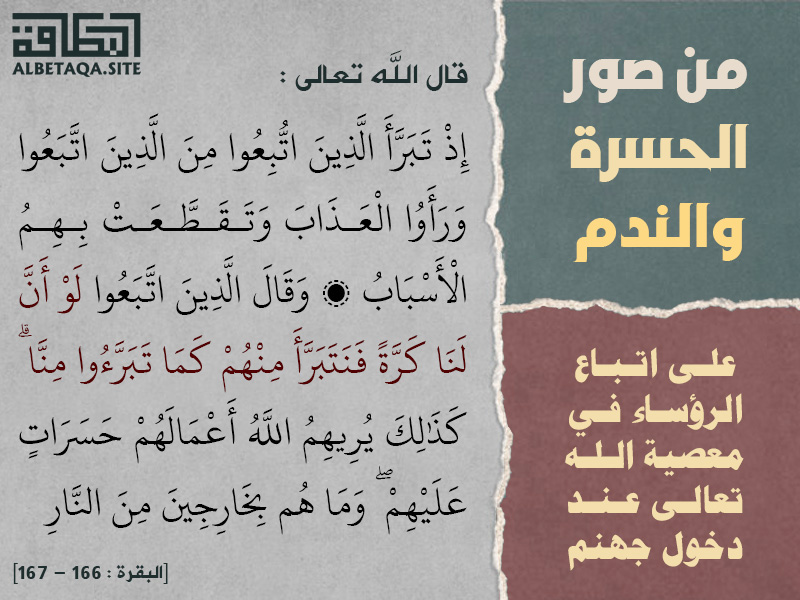 البطاقة
ALBETAQA.SITE
من صور
الحسرة
والندم
على اتباع
الرؤساء في
معصية الله
تعالى عند
دخول جهنم
قال الله تعالى :
إِذْ تَبَرَّأَ الَّذِينَ اتُّبِعُوا مِنَ الَّذِينَ اتَّبَعُوا
وَرَأَوُا الْعَذَابَ وَتَقَطَّعَتْ بِهِمُ
الْأَسْبَابُ ۝ وَقَالَ الَّذِينَ اتَّبَعُوا لَوْ أَنَّ
لَنَا كَرَّةً فَنَتَبَرَّأَ مِنْهُمْ كَمَا تَبَرَّءُوا مِنَّا ۗ
كَذَٰلِكَ يُرِيهِمُ اللَّهُ أَعْمَالَهُمْ حَسَرَاتٍ
عَلَيْهِمْ ۖ وَمَا هُم بِخَارِجِينَ مِنَ النَّارِ
[البقرة : 166 – 167]